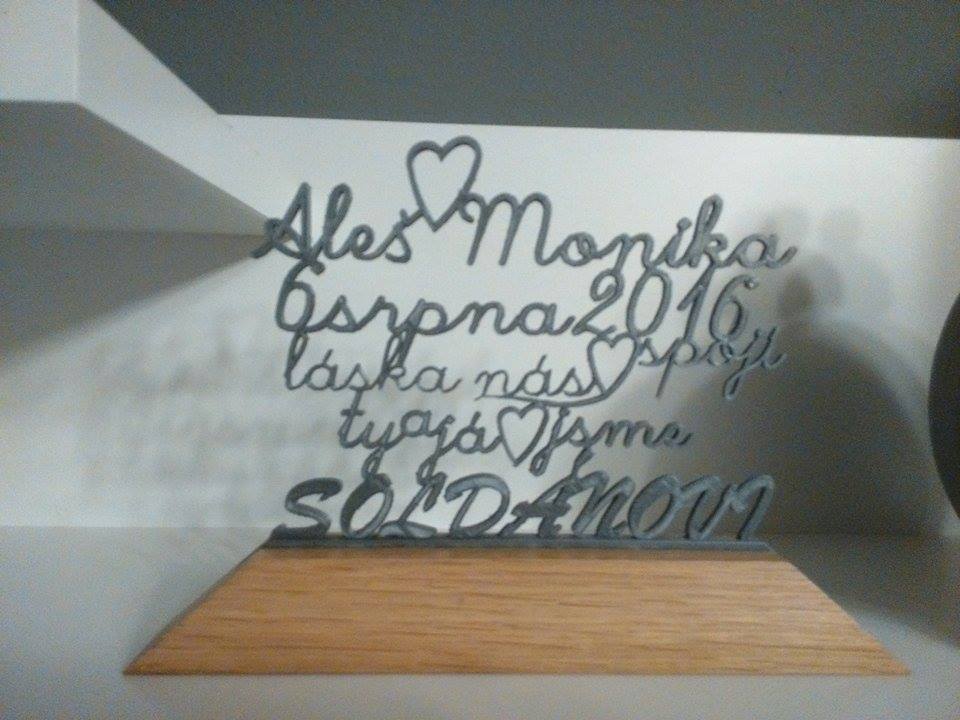 Aleš Monika
6 srpna 2016
láska nás spojí
ty a já jsme
SOLDÁNOVI